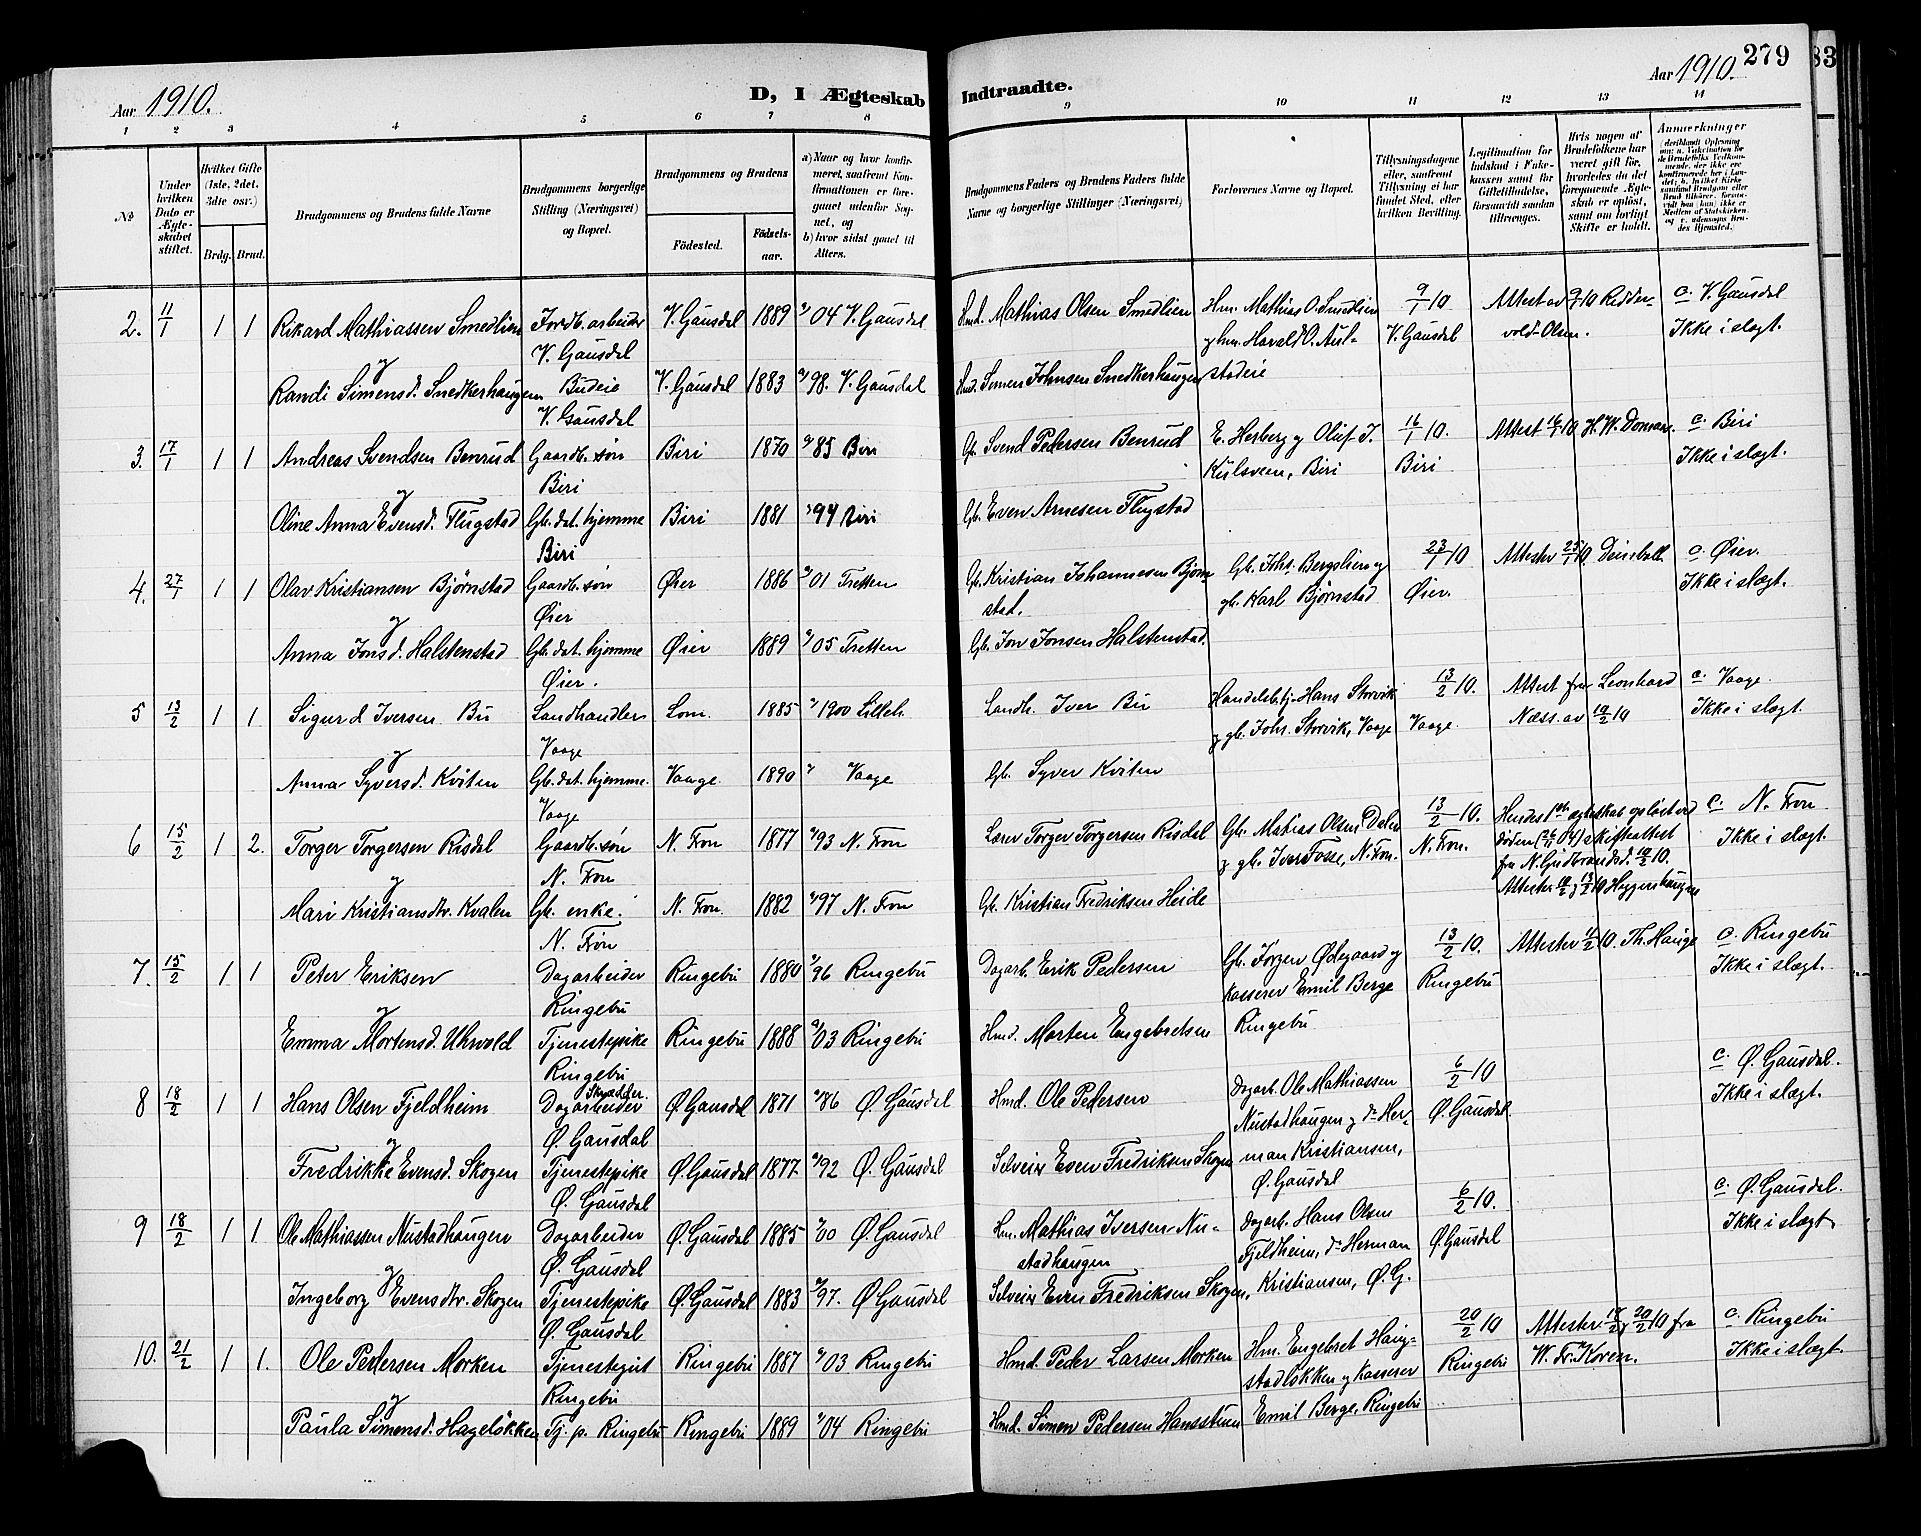 Aar 1910.
D, I Ægteskab Indtraadte.
Aar 1910.
279
83
1 2 3 4 5 6 7 8 9 10 11 12 13 14
No
Under hvilken Dato er Ægteskabet stiftet.
Hvilket Gifte (1ste, 2det, 3die osv.)
Brdg. Brud.
Brudgommens og Brudens fulde Navne
Brudgommens borgerlige Stilling (Næringsvei) og Bopæl.
Brudgommens og Brudens
Födested. Födselsaar.
a) Naar og hvor konfirmeret, saafremt Konfirmationen er foregaaet udenfor Sognet, og b) hvor sidst gaaet til Alters.
Brudgommens Faders og Brudens Faders fulde Navne og borgerlige Stillinger (Næringsvei)
Forlovernes Navne og Bopæl.
Tillysningsdagene eller, saafremt Tillysning ei har fundet Sted, efter hvilken Bevilling.
Legitimation for Indskud i Enkekassen samt for Giftetilladelse, forsaavidt saadan tiltrænges.
Hvis nogen af Brudefolkene har været gift för, hvorledes da det foregaaende Ægteskab er oplöst, samt om lovligt Skifte er holdt.
Anmærkninger
2. 11/1 1 1 Rikard Mathiassen Smedlien Jordb. arbeider V. Gausdal 1889 04 V. Gausdal Hmd. Mathias Olsen Smedlien Hm. Mathias O. Smedlien 9/1 10 Attest av 9/1 10 Reddervold-Olsen. c. V. Gausdal
og V. Gausdal og hm. Harald O. Aulstadeie V. Gausdal Ikke i slægt.
Randi Simensd. Snedkerhaugen Budeie V. Gausdal 1883 98. V. Gausdal Hmd. Simen Johnsen Snedkerhaugen
V. Gausdal
3. 17/1 1 1 Andreas Svendsen Benrud Gaardb. søn Biri 1870 85 Biri Gb. Svend Pedersen Benrud E. Herberg og Oluf J. 16/1 10. Attest 16/1 10 c. Biri
og Biri Kulsveen, Biri Biri Ikke i slægt.
Oline Anna Evensd. Flugstad Gb. dat. hjemme Biri 1881 94 Biri Gb. Even Arnesen Flugstad
Biri
4. 27/1 1 1 Olav Kristiansen Bjørnstad Gaardb. søn Øier 1886 01 Tretten Gb. Kristian Johannesen Bjørnstad. Gb. Johs. Bergslien og 23/1 10 Attester 25/1 10 c. Øier.
og Øier gb. Karl Bjørnstad Øier. Ikke i slægt.
Anna Jonsd. Halstenstad Gb. dat. hjemme Øier 1889 05 Tretten Gb. Jon Jonsen Halstenstad.
Øier.
5 13/2 1 1 Sigurd Iversen Bu Landhandler Lom. 1885 1900 Lilleh. Landh. Iver Bu Handelsbtj. Hans Storvik 13/2 10. Attest fra Leonhard c. Vaage.
og Vaage og gb. Johs. Storvik, Vaage Vaage. Næss. av 10/2 10 Ikke i slægt.
Anna Syversd. Kviten Gb. dat. hjemme. Vaage 1890 Vaage Gb. Syver Kviten
Vaage
6 15/2 1 2. Torger Torgersen Risdal Gaardb. søn N. Fron 1877 93 N. Fron Lærer Torger Torgersen Risdal Gb. Matias Olsen Dalen 13/2 10. Hendes 1ste egteskab opløst ved c. N. Fron
og N. Fron og gb. Iver Fosse, N. Fron. N. Fron. døden (26/11 04) skifteattest Ikke i slægt.
fra N. Gudbrandsd. 10/2 10.
Mari Kristiansdtr. Kvalen Gb. enke. N. Fron. 1882 97 N. Fron Gb. Kristian Fredriksen Heide Attester 10/2 og 13/2 10
N. Fron
7. 15/2 1 1 Peter Eriksen Dagarbeider Ringebu 1880 96 Ringebu Dagarb. Erik Pedersen Gb. Jørgen Ødegaard og 13/2 10. Attester 11/2 10. Th. Hauge c. Ringebu
og Ringebu kasserer Emil Berge Ringebu Ikke i slægt.
Emma Mortensd. Ulvold Tjenestepike Ringebu 1888 03 Ringebu Hmd. Morten Engebretsen Ringebu
Ringebu
8 18/2 1 1 Hans Olsen Fjeldheim Skredder. Dagarbeider Ø. Gausdal 1871 86 Ø. Gausdal Hmd. Ole Pedersen Dagarb. Ole Mathiassen 6/2 10 c. Ø. Gausdal.
og Ø. Gausdal Nustadhaugen og do Her- Ø. Gausdal Ikke i slægt.
Fredrikke Evensd. Skogen Tjenestepike Ø. Gausdal 1877 92 Ø. Gausdal Selveier Even Fredriksen Skogen man Kristiansen,
Ø. Gausdal Ø. Gausdal
9 18/2 1 1 Ole Mathiassen Nustadhaugen Dagarbeider Ø. Gausdal 1885 00 Ø. Gausdal Hm. Mathias Iversen Nustadhaugen Dagarb. Hans Olsen 6/2 10. c. Ø. Gausdal.
og Ø. Gausdal Fjeldheim, do Herman Ø. Gausdal Ikke i slægt
Ingeborg Evensdtr. Skogen Tjenestepike Ø. Gausdal 1883 97. Ø. Gausdal Selveier Even Fredriksen Skogen, Kristiansen, Ø. G.
Ø. Gausdal
10. 21/2 1 1. Ole Pedersen Morken Tjenestegut Ringebu 1887 03 Ringebu Hmd. Peder Larsen Morken Hm. Engebret Haug- 20/2 10 Attester 18/2 og 20/2 10 fra c. Ringebu
og Ringebu stadløkken og kasserer Ringebu W. Fr. Koren. Ikke i slægt.
Paula Simensd. Hageløkken Tj. p. Ringebu Ringebu 1889 04 Ringebu Hmd. Simen Pedersen Hansstuen Emil Berge, Ringebu